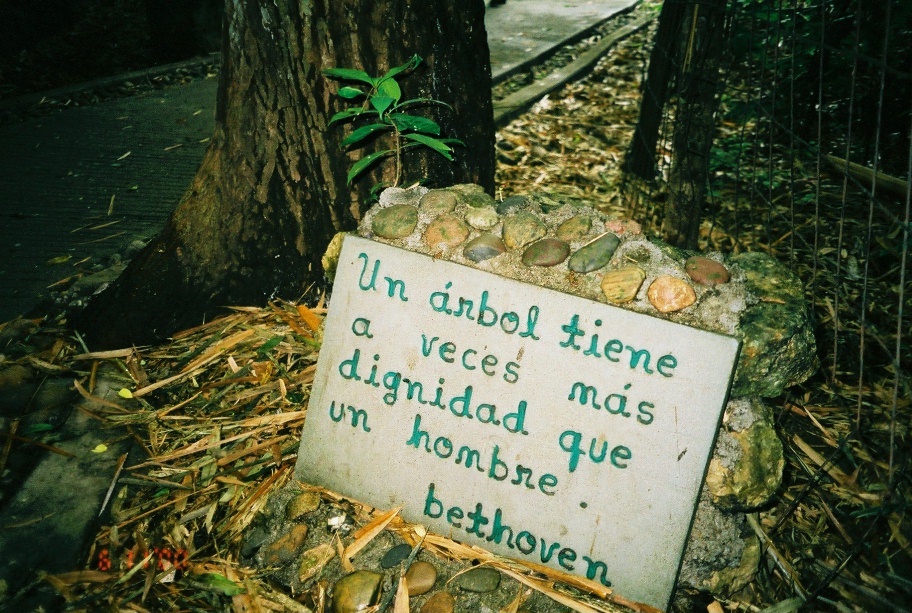 Un árbol tiene
a veces más
dignidad que
un hombre.
bethoven